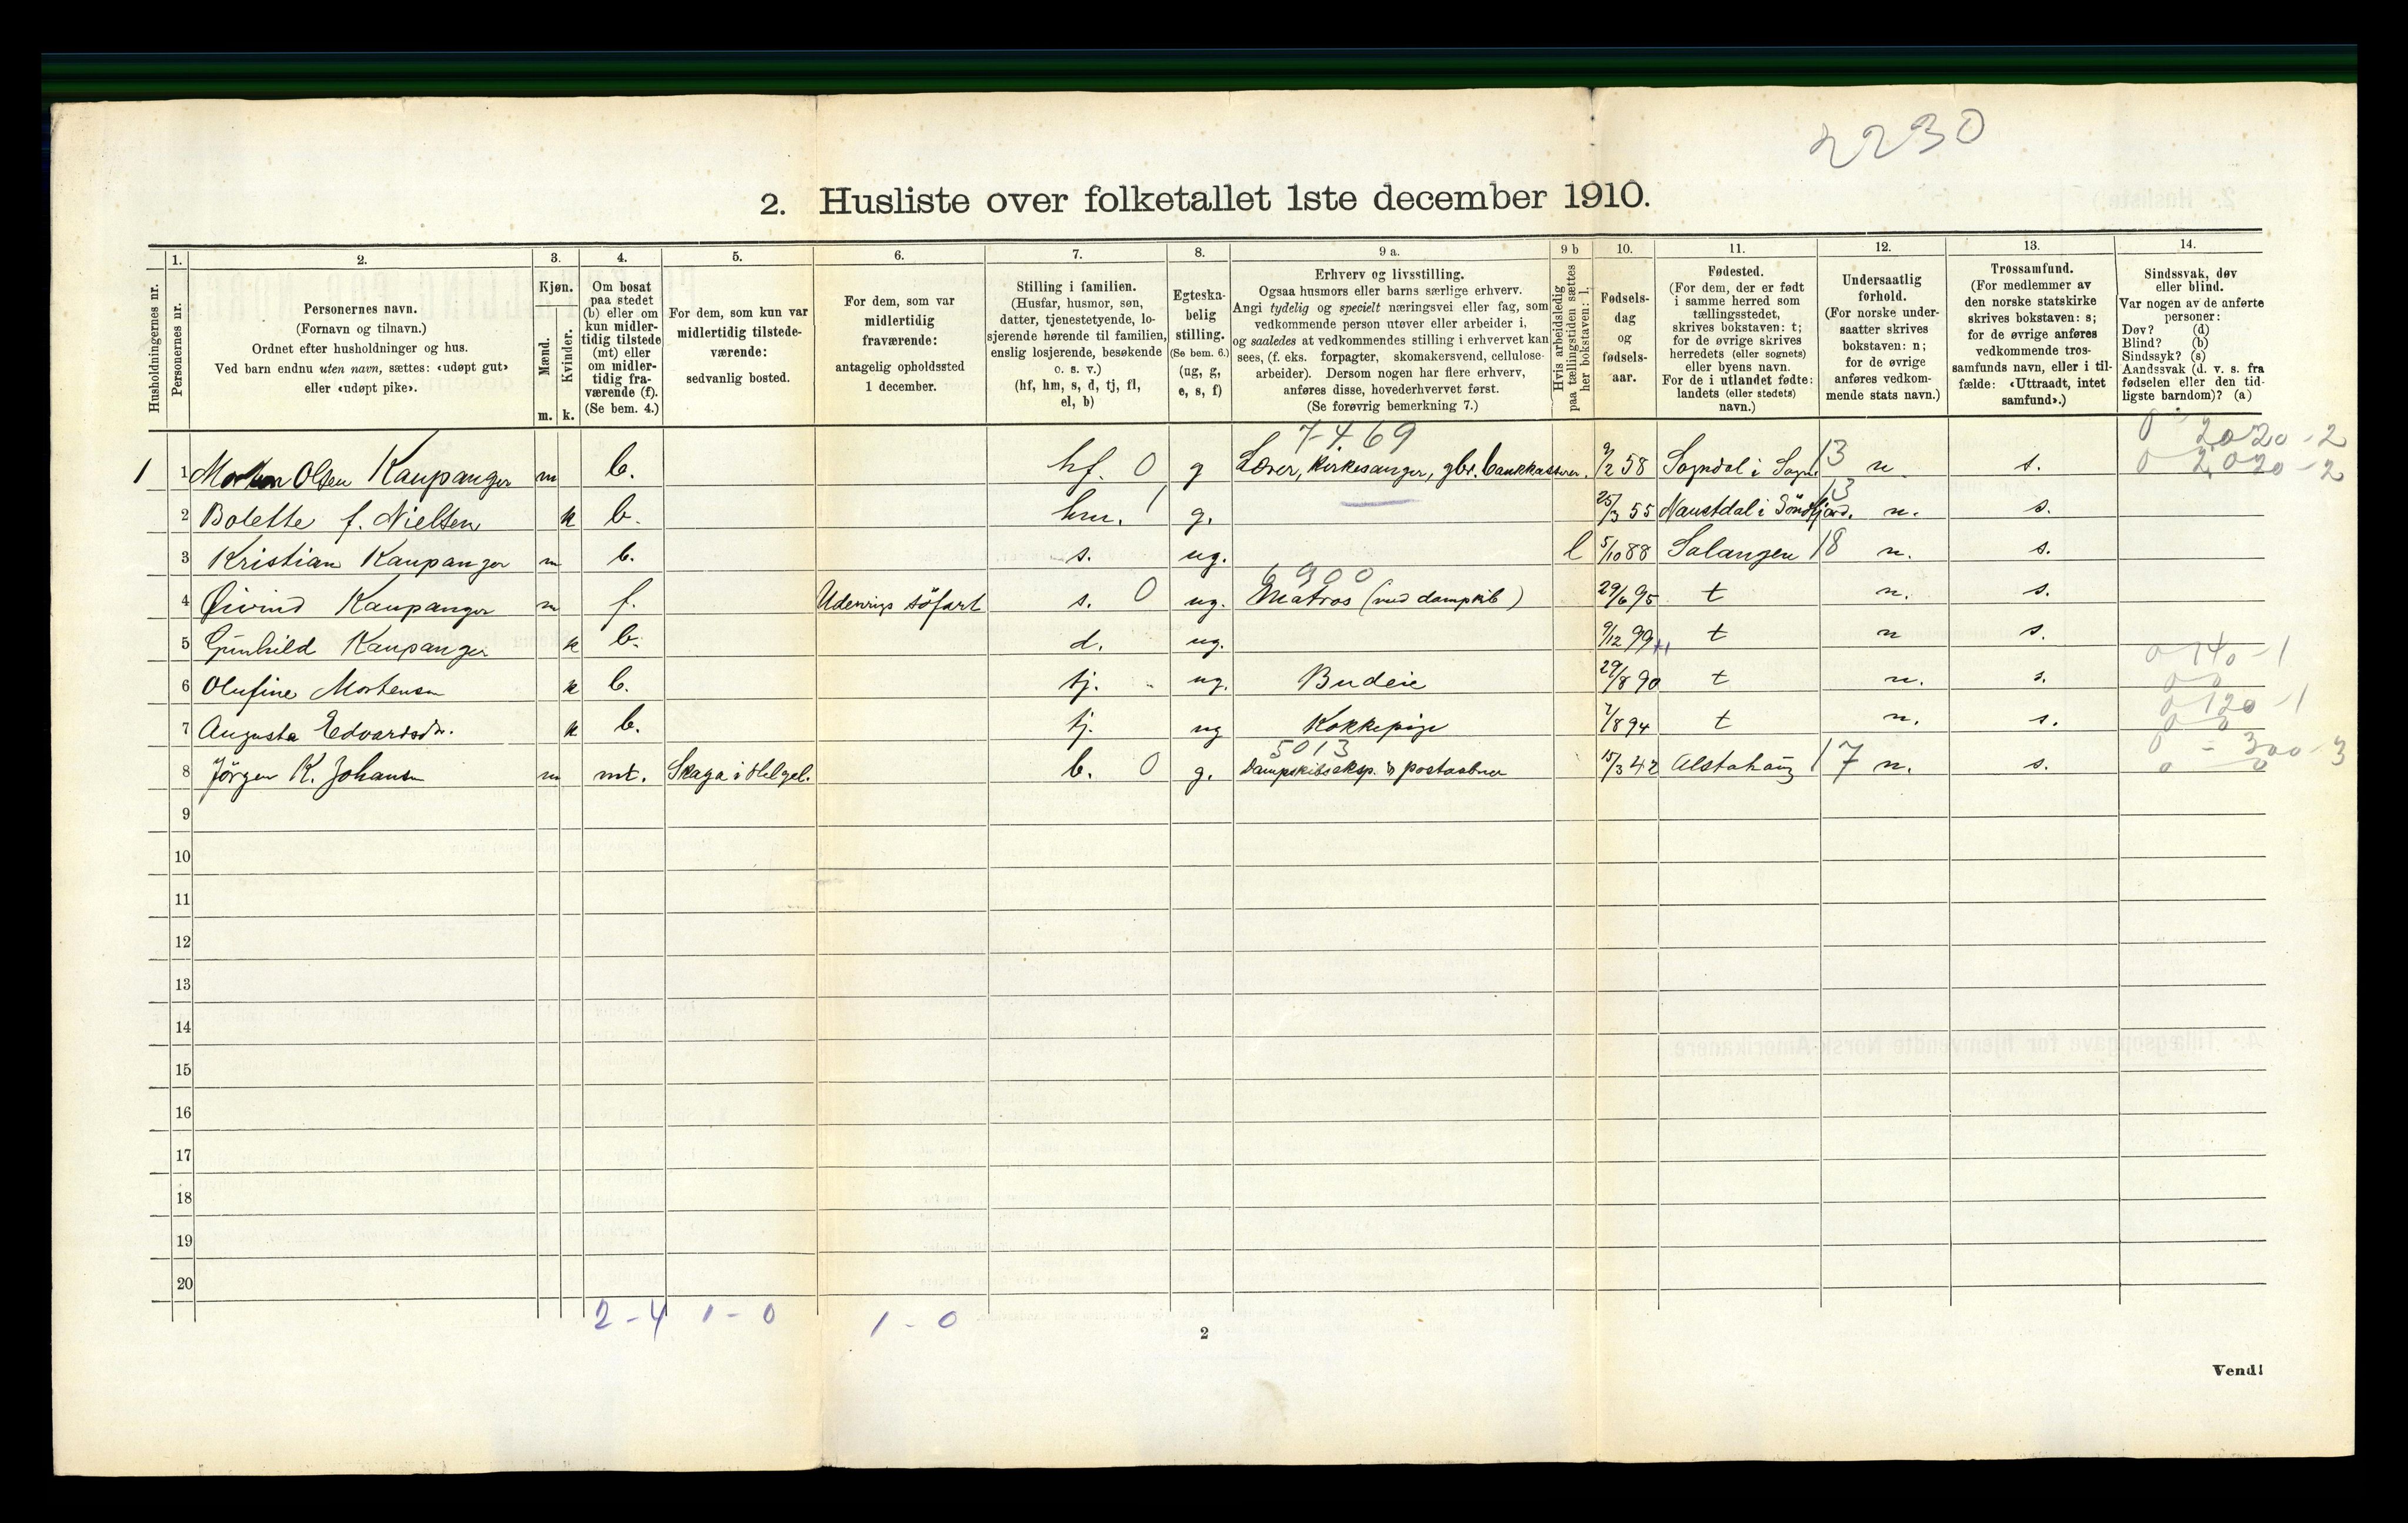 2230
2. Husliste over folketallet 1ste december 1910.
Husholdningernes nr.
1.
Personernes nr.
2.
Personernes navn.
(Fornavn og tilnavn.)
Ordnet efter husholdninger og hus.
Ved barn endnu uten navn, sættes: «udøpt gut»
eller «udøpt pike».
3.
Kjøn.
Mænd.
Kvinder.
m. k.
4.
Om bosat
paa stedet
(b) eller om
kun midler-
tidig tilstede
(mt) eller
om midler-
tidig fra-
værende (f).
(Se bem. 4.)
5.
For dem, som kun var
midlertidig tilstede-
værende:
sedvanlig bosted.
6.
For dem, som var
midlertidig
fraværende:
antagelig opholdssted
1 december.
7.
Stilling i familien.
(Husfar, husmor, søn,
datter, tjenestetyende, lo-
sjerende hørende til familien,
enslig losjerende, besøkende
o. s. v.)
(hf, hm, s, d, tj, fl,
el, b)
8.
Egteska-
belig
stilling.
(Se bem. 6.)
(ug, g,
e, s, f)
9 a.
Erhverv og livsstilling.
Ogsaa husmors eller barns særlige erhverv.
Angi tydelig og specielt næringsvei eller fag, som
vedkommende person utøver eller arbeider i,
og saaledes at vedkommendes stilling i erhvervet kan
sees, (f. eks. forpagter, skomakersvend, cellulose-
arbeider). Dersom nogen har flere erhverv,
anføres disse, hovederhvervet først.
(Se forøvrig bemerkning 7.)
9 b
Hvis arbeidsledig
paa tællingstiden sættes
her bokstaven: l.
10.
Fødsels-
dag
og
fødsels-
aar.
11.
Fødested.
(For dem, der er født
i samme herred som
tællingsstedet,
skrives bokstaven: t;
for de øvrige skrives
herredets (eller sognets)
eller byens navn.
For de i utlandet fødte:
landets (eller stedets)
navn.)
12.
Undersaatlig
forhold.
(For norske under-
saatter skrives
bokstaven: n;
for de øvrige
anføres vedkom-
mende stats navn.)
13.
Trossamfund.
(For medlemmer av
den norske statskirke
skrives bokstaven: s;
for de øvrige anføres
vedkommende tros-
samfunds navn, eller i til-
fælde: «Uttraadt, intet
samfund».)
14.
Sindssvak, døv
eller blind.
Var nogen av de anførte
personer:
Døv? (d)
Blind? (b)
Sindssyk? (s)
Aandssvak (d. v. s. fra
fødselen eller den tid-
ligste barndom)? (a)
7-4.69 0 2020-2
1 1 Morten Olsen Kaupanger m b. hf. 0 g Lærer, kirkesanger, gbr. bankkasserer. 9/2 58 Sogndal i Sogn. 13 n s. 0 2,020-2
2 Bolette f. Nielsen k b. hm. 1 g. 25/3 55 Naustdal i Søndfjord. 13 n. s.
3 Kristian Kaupanger m b. s. ug. l 5/10 88 Salangen 18 n. s.
6900
4 Øivind Kaupanger m f. Udenrigs söfart s. 0 ug. Matros (med dampskib) 29/6 95 t n. s.
5 Gunhild Kaupanger k b. d. ug. 9/12 99 t n s.
0 140-1
6 Olufine Mortensen k b. tj. ug. Budeie 29/8 90 t n. s. 0 0
0 120-1
7 Augusta Edvardsdtr. k b. tj. ug Kokkepige 7/8 94 t n. s. 0 0
5013 0 - 300-3
8 Jörgen K. Johansen m mt. Skaga i Helgel. b. 0 g. Dampskibseksp. & postaabner 15/3 42 Alstahaug 17 n. s. 0 0
9
10
11
12
13
14
15
16
17
18
19
20
2-4 1-0 1-0
2
Vend!